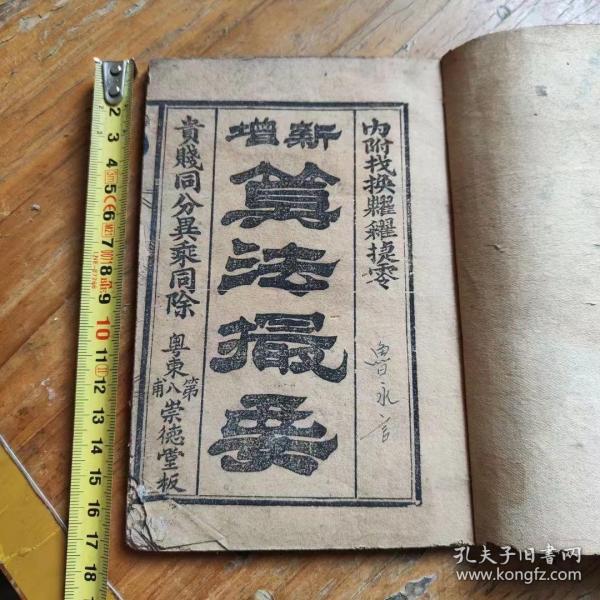 內附找換糶糴捷零
新增
算法撮要
貴賤同分異乘同除
粵東第八甫崇德堂板
魯永言
2
3
4
5
6
7
8
9
10
11
12
13
14
15
16
17
18
孔夫子旧书网
www.kongfz.com